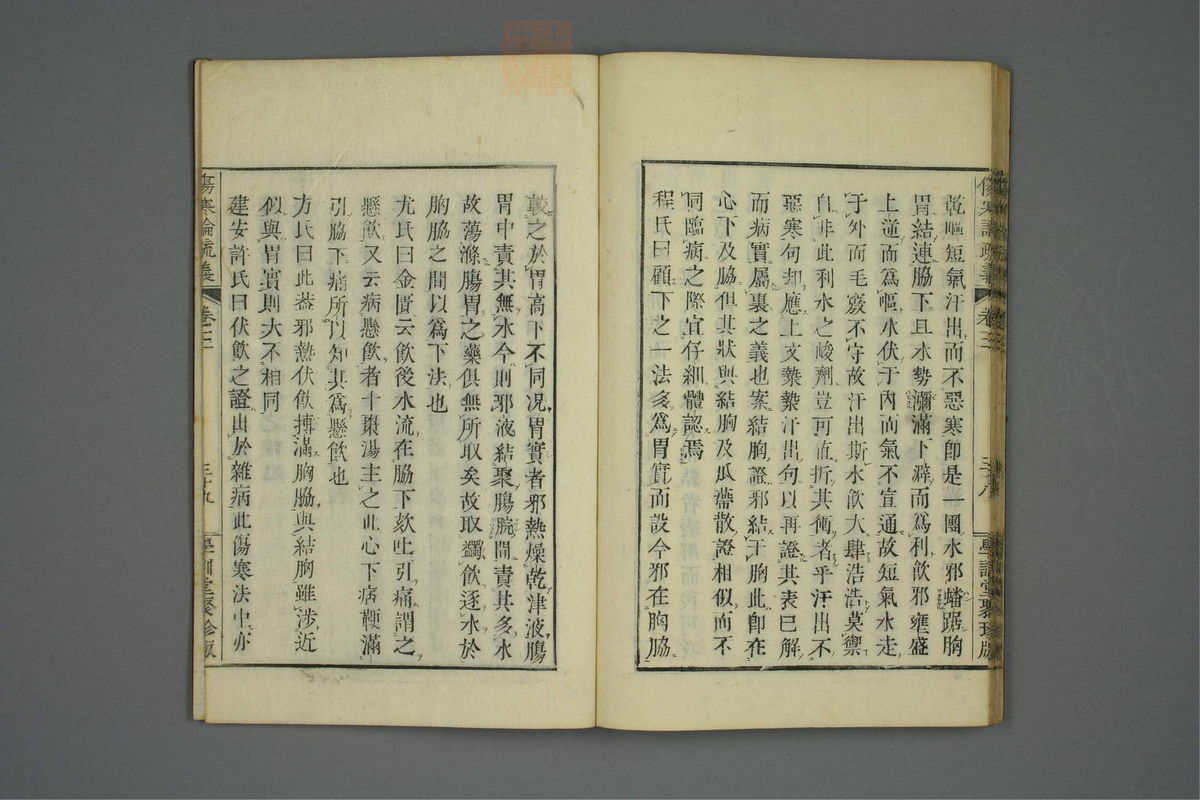 傷寒論疏義 卷三 三十八 學訓堂聚珍版
乾嘔短氣汗出而不惡寒卽是一團水邪蟠踞胸
胃結連脇下且水勢瀰滿下澼而爲利飮邪壅盛
上逆而爲嘔水伏于內而氣不宣通故短氣水走
于外而毛竅不守故汗出斯水飮大肆浩浩莫禦
自非此利水之峻劑豈可直折其衝者乎汗出不
惡寒句却應上文漐漐汗出句以再證其表已解
而病實屬裏之義也案結胸證邪結于胸此卽在
心下及脇但其狀與結胸及瓜蔕散證相似而不
同臨病之際宜仔細體認焉
程氏曰顧下之一法多爲胃實而設今邪在胸脇
較之於胃高下不同况胃實者邪熱燥乾津液腸
胃中責其無水今則邪液結聚腸脘間責其多水
故蕩滌腸胃之藥俱無所取矣故取蠲飮逐水於
胸脇之間以爲下法也
尤氏曰金匱云飮後水流在脇下欬吐引痛謂之
懸飮又云病懸飮者十棗湯主之此心下痞鞕滿
引脇下痛所以知其爲懸飮也
方氏曰此葢邪熱伏飮摶滿胸脇與結胸雖涉近
似與胃實則大不相同
建安許氏曰伏飮之證出於雜病此傷寒法中亦
傷寒論疏義 卷三 三十九 學訓堂聚珍版